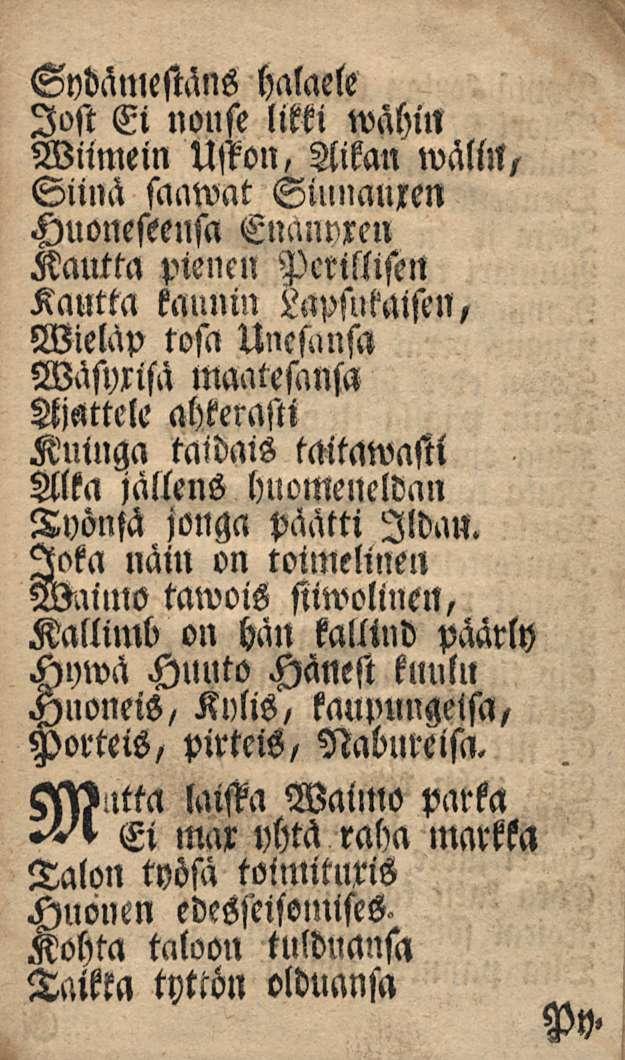 Sydämestäns halaele
Jost Ei nouse likki wähin
Wiimein Uskon, Aikan wälin,
Siinä saawat Siunauxen
Huoneseensa Enänyxen
Kautta pienen Perillisen
Kautta kaunin Lapsukaisen,
Wieläp tosa Unesansa
Wäsyxisä maatesansa
Ajattele ahkerasti
Kuinga taidais taitawasti
Alka jällens huomeneldan
Työnsä jonga päätti Ildan.
Joka näin on toimelinen
Waimo tawois siiwolinen,
Kallimb on hän kallind päärly
Hywä Huuto Hänest kuulu
Huoneis, Kylis, kaupungeisa,
Porteis, pirteis, Nabureisa.
Mutta laiska Waimo parka
Ei max yhtä raha markka
Talon työsä toimituxis
Huonen edesseisomises.
Kohta taloon tulduansa
Taikka tyttön olduansa
Py-